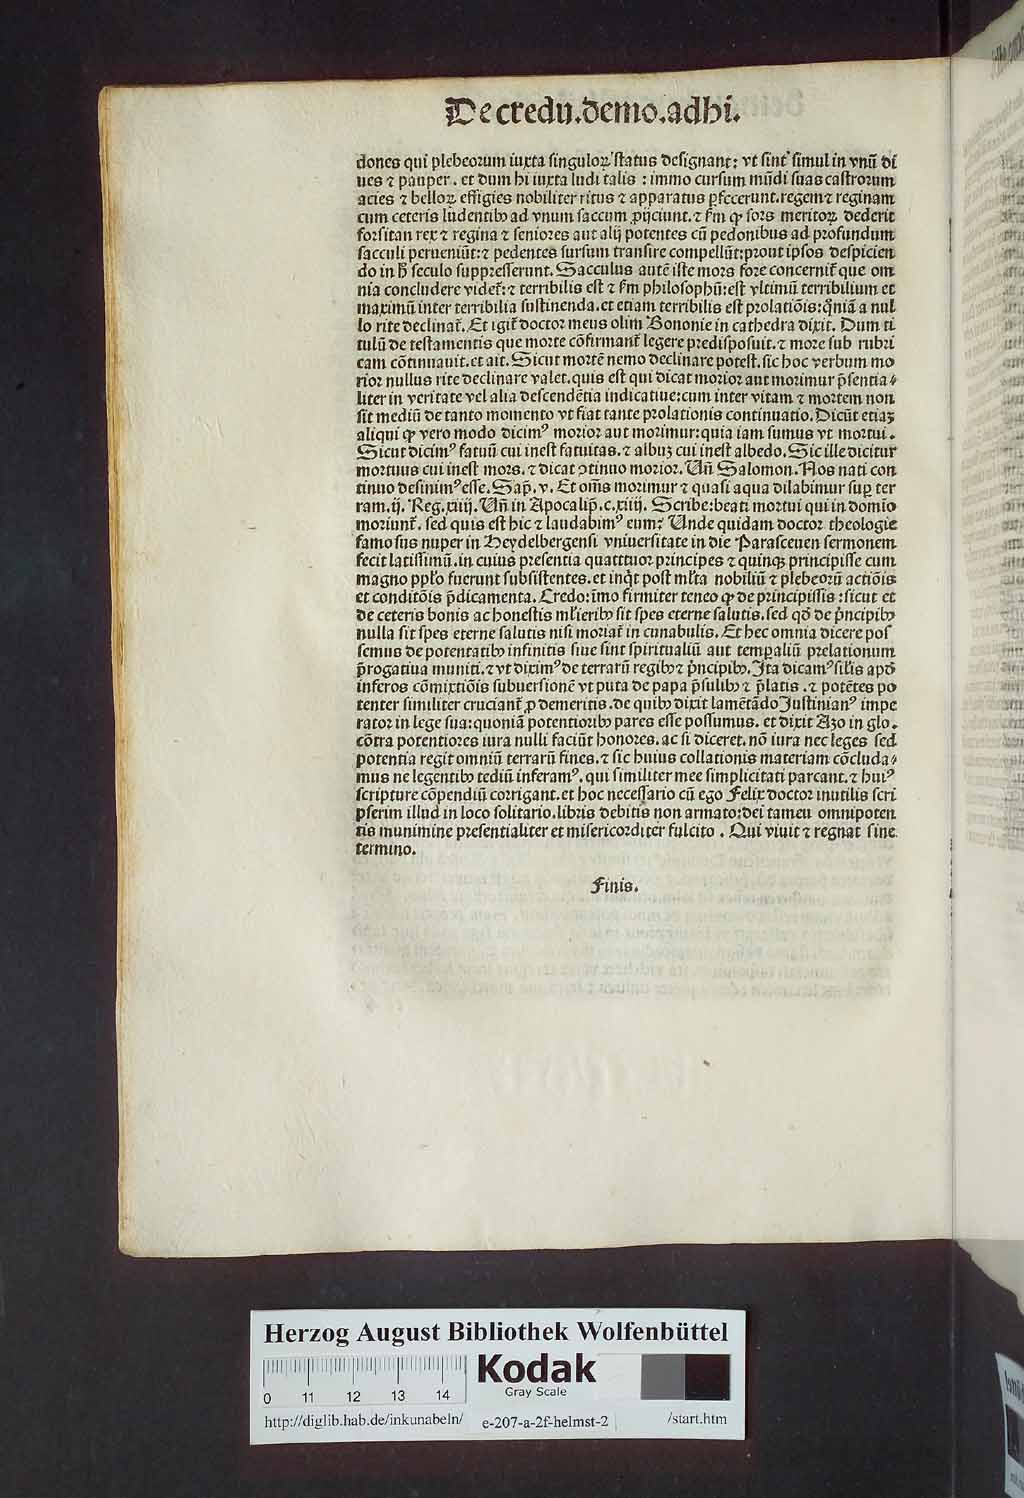 De credu. demo. adhi.
dones qui plebeorum iuxta singuloꝝ status designant: vt sint simul in vnū di
ues ⁊ pauper. et dum hi iuxta ludi talis: immo cursum mūdi suas castrorum
acies ⁊ belloꝝ effigies nobiliter ritus ⁊ apparatus ꝑfecerunt. regem ⁊ reginam
cum ceteris ludentibꝰ ad vnum saccum ꝓijciunt. ⁊ fm ꝙ sors meritoꝝ dederit
forsitan rex ⁊ regina ⁊ seniores aut alij potentes cū pedonibus ad profundum
sacculi perueniūt: ⁊ pedentes sursum transire compellūt: prout ipsos despicien
do in h̄ seculo suppresserunt. Sacculus autē iste mors fore concernit̃ que om
nia concludere videt̃: ⁊ terribilis est ⁊ fm philosophū: est vltimū terribilium et
maximū inter terribilia sustinenda. et etiam terribilis est prolatiōis: qm̄iā a nul
lo rite declinat̃. Et igit̃ doctor meus olim Bononie in cathedra dixit. Dum ti
tulū de testamentis que morte cōfirmant̃ legere predisposuit. ⁊ more sub rubri
cam cōtinuauit. et ait. Sicut mortē nemo declinare potest. sic hoc verbum mo
rior nullus rite declinare valet. quis est qui dicat morior aut morimur p̄sentia⸗
liter in veritate vel alia descendētia indicatiue: cum inter vitam ⁊ mortem non
sit mediū de tanto momento vt fiat tante prolationis continuatio. Dicūt etiaꝫ
aliqui ꝙ vero modo dicimꝰ morior aut morimur: quia iam sumus vt mortui.
Sicut dicimꝰ fatuū cui inest fatuitas. ⁊ albuꝫ cui inest albedo. Sic ille dicitur
mortuus cui inest mors. ⁊ dicat ꝯtinuo morior. Un̄ Salomon. Nos nati con
tinuo desinimꝰ esse. Sap̄. v. Et om̄s morimur ⁊ quasi aqua dilabimur suꝑ ter
ram. ij. Reg. xiiij. Un̄ in Apocalip̄. c. xiiij. Scribe: beati mortui qui in domīo
moriunt̃. sed quis est hic ⁊ laudabimꝰ eum? Unde quidam doctor theologie
famosus nuper in Heydelbergensi vniuersitate in die Parasceuen sermonem
fecit latissimū. in cuius presentia quattuor principes ⁊ quinqꝫ principisse cum
magno pp̄lo fuerunt subsistentes. et inq̇t post ml̄ta nobiliū ⁊ plebeorū actiōis
et conditōis p̄dicamenta. Credo: īmo firmiter teneo ꝙ de principissis: sicut et
de ceteris bonis ac honestis ml̄ieribꝰ sit spes eterne salutis. sed qō de p̄ncipibꝰ
nulla sit spes eterne salutis nisi moriat̃ in cunabulis. Et hec omnia dicere pos
semus de potentatibꝰ infinitis siue sint spiritualiū aut temꝑaliū prelationum
p̄rogatiua muniti. ⁊ vt diximꝰ de terrarū regibꝰ ⁊ p̄ncipibꝰ. Ita dicamꝰ sil̄is apd̄
inferos cōmixtiōis subuersionē vt puta de papa p̄sulibꝰ ⁊ p̄latis. ⁊ potētes po
tenter similiter cruciant̃ ꝓ demeritis. de quibꝰ dixit lamētādo Justinianꝰ impe
rator in lege sua: quoniā potentioribꝰ pares esse possumus. et dixit Azo in glo.
cōtra potentiores iura nulli faciūt honores. ac si diceret. nō iura nec leges sed
potentia regit omniū terrarū fines. ⁊ sic huius collationis materiam cōcluda⸗
mus ne legentibꝰ tediū inferamꝰ. qui similiter mee simplicitati parcant. ⁊ huiꝰ
scripture cōpendiū corrigant. et hoc necessario cū ego Felix doctor inutilis scri
pserim illud in loco solitario. libris debitis non armato: dei tameu omnipoten
tis munimine presentialiter et misericorditer fulcito. Qui viuit ⁊ regnat sine
termino.
Finis.
Herzog August Bibliothek Wolfenbüttel
Kodak
Gray Scale
0 11 12 13 14
http://diglib.hab.de/inkunabeln/ e-207-a-2f-helmst-2 /start.htm